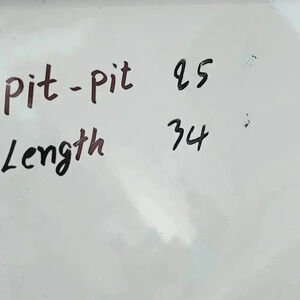 pit-pit 25
Length 34